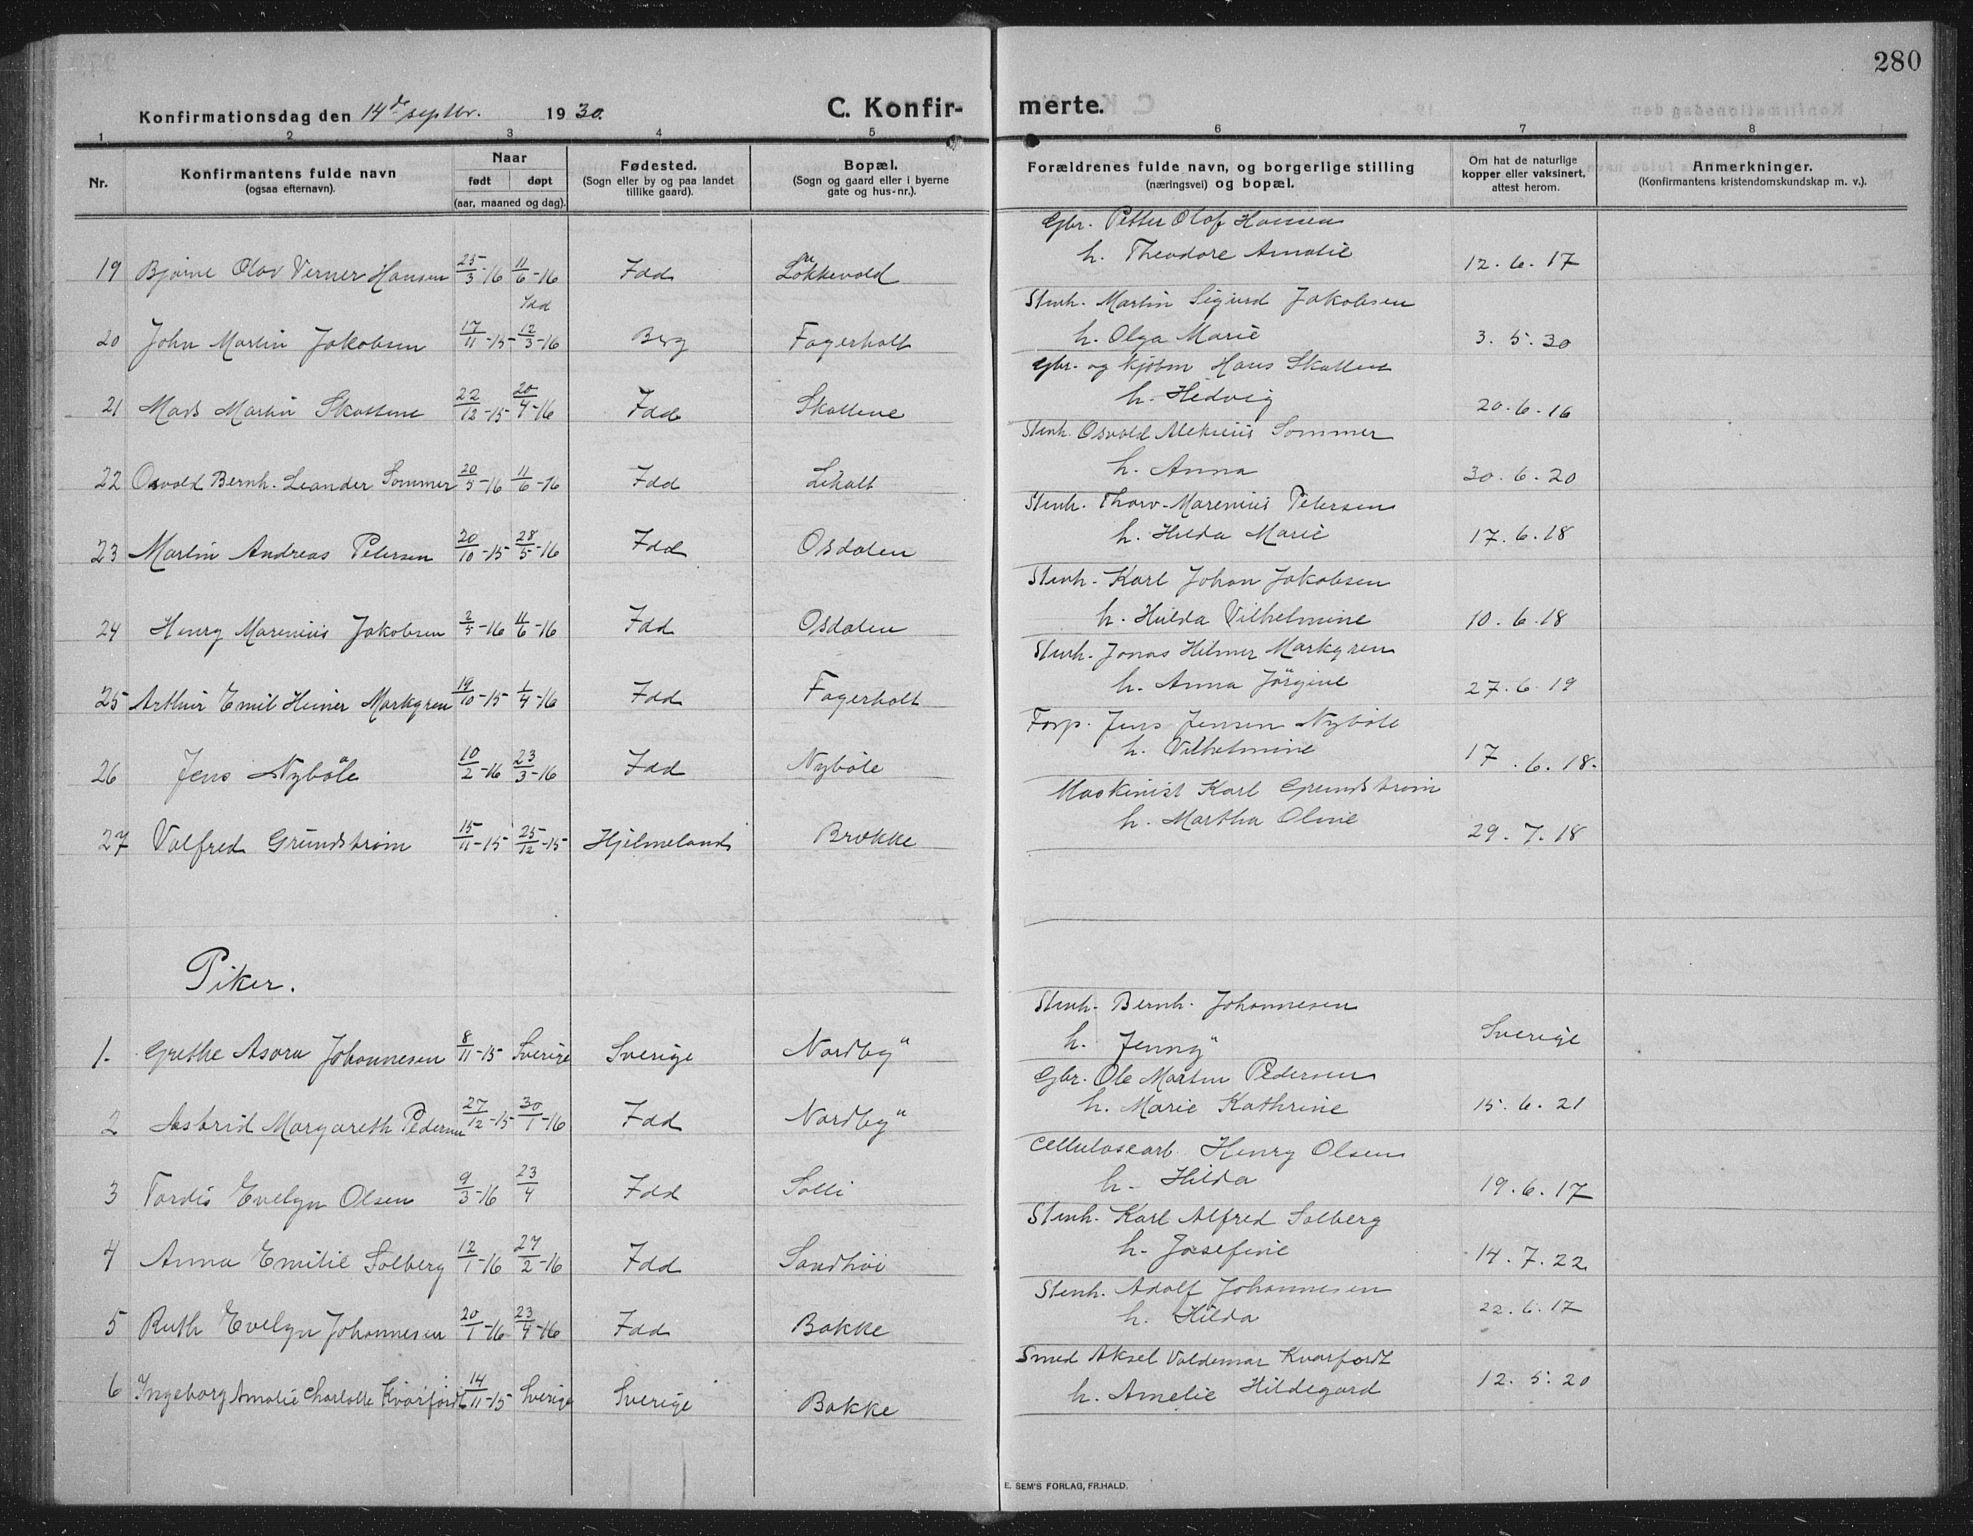 280
Konfirmationsdag den 14de septbr. 1930.
C. Konfirmerte.
1 2 3 4 5 6 7 8
Nr.
Konfirmantens fulde navn
(ogsaa efternavn).
Naar
født døpt
(aar, maaned og dag).
Fødested.
(Sogn eller by og paa landet
tillike gaard).
Bopæl.
(Sogn og gaard eller i byerne
gate og hus-nr.).
Forældrenes fulde navn, og borgerlige stilling
(næringsvei) og bopæl.
Om hat de naturlige
kopper eller vaksinert,
attest herom.
Anmerkninger.
(Konfirmantens kristendomskundskap m. v.).
Gbr. Petter Olof Hansen
19 Bjarne Olav Verner Hansen 25/3-16 11/6-16 Idd Løkkevold h. Theodore Amalie 12.6.17
Idd
Stenh. Martin Sigurd Jakobsen
20 John Martin Jakobsen 17/11-15 12/3-16 Berg Fagerholt h. Olga Marie 3.5.30
Gbr. og kjøbm Hans Skallene
21 Mads Martin Skallene 22/12-15 20/4-16 Idd Skallene h. Hedvig 20.6.16
Stenh. Osvald Aleksius Sommer
22 Osvald Bernh. Leander Sommer 20/5-16 11/6-16 Idd Liholt h. Anna 30.6.20
Stenh. Thorv. Marenius Petersen
23 Martin Andreas Petersen 20/10-15 28/5-16 Idd Osdalen h. Hilda Marie 17.6.18
Stenh. Karl Johan Jakobsen
24 Henry Marenius Jakobsen 2/5-16 11/6-16 Idd Osdalen h. Hulda Vilhelmine 10.6.18
Stenh. Jonas Hilmer Markgren
25 Arthur Emil Heiner Markgren 19/10-15 1/4-16 Idd Fagerholt h. Anna Jørgine 27.6.19
Forp. Jens Jensen Nybøle
26 Jens Nybøle 10/2-16 23/3-16 Idd Nybøle h. Vilhelmine 17.6.18.
Maskinist Karl Grundstrøm
27 Valfred Grundstrøm 15/11-15 25/12-15 Hjelmeland Brekke h. Martha Oline 29.7.18
Piker.
Stenh. Bernh. Johannesen
1. Grethe Asora Johannesen 8/11-15 Sverige Sverige Nordby" h. Jenny" Sverige
Gbr. Ole Martin Pedersen
2 Astrid Margareth Pedersen 27/12-15 30/1-16 Idd Nordby" h. Marie Kathrine 15.6.21
Cellulosearb. Henry Olsen
3 Tordis Evelyn Olsen 9/3-16 23/4 Idd Solli h. Hilda 19.6.17
Stenh. Karl Alfred Solberg
4 Anna Emilie Solberg 12/1-16 27/2-16 Idd Sandhøi h. Josefine 14.7.22
Stenh. Adolf Johannesen
5 Ruth Evelyn Johannesen 20/1-16 23/4-16 Idd Bakke h. Hilda 22.6.17
Smed Aksel Valdemar Kvarfordt
6 Ingeborg Amalie Charlotte Kvarfordt 14/11-15 Sverige Sverige Bakke h. Amelie Hildegard 12.5.20
E. SEM'S FORLAG, FR.HALD.